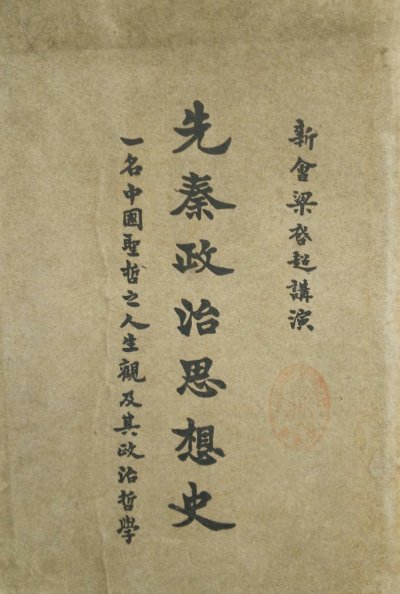 新會梁啓超講演
先秦政治思想史
一名中國聖哲之人生觀及其政治哲學